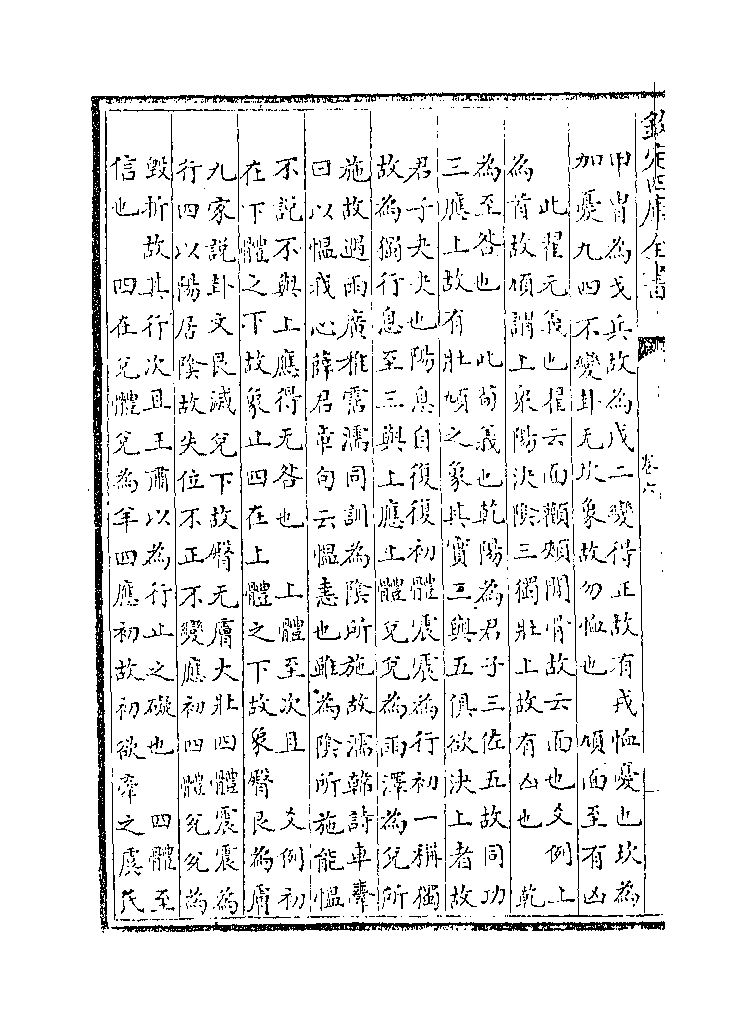 欽定四庫全書
卷六
甲胄為戈兵故為戎二變得正故有戎恤憂也坎為
加憂九四不變卦无坎象故勿恤也　頄面至有凶
此翟元義也翟云面顴頰間骨故云面也爻例上
為首故頄謂上衆陽決陰三獨壯上故有凶也　乾
為至咎也　此荀義也乾陽為君子三佐五故同功
三應上故有壯頄之象其實三與五俱欲決上者故
君子夬夬也陽息自復復初體震震為行初一稱獨
故為獨行息至三與上應上體兌兌為雨澤為兌所
施故遇雨廣雅霑濡同訓為陰所施故濡韓詩車舝
曰以慍我心薛君章句云慍恚也雖為陰所施能慍
不說不與上應得无咎也　上體至次且　爻例初
在下體之下故象止四在上體之下故象臀艮為膚
九家說卦文艮滅兌下故臀无膚大壯四體震震為
行四以陽居陰故失位不正不變應初四體兌兌為
毀折故其行次且王肅以為行止之礙也　四體至
信也　四在兌體兌為羊四應初故初欲牽之虞氏